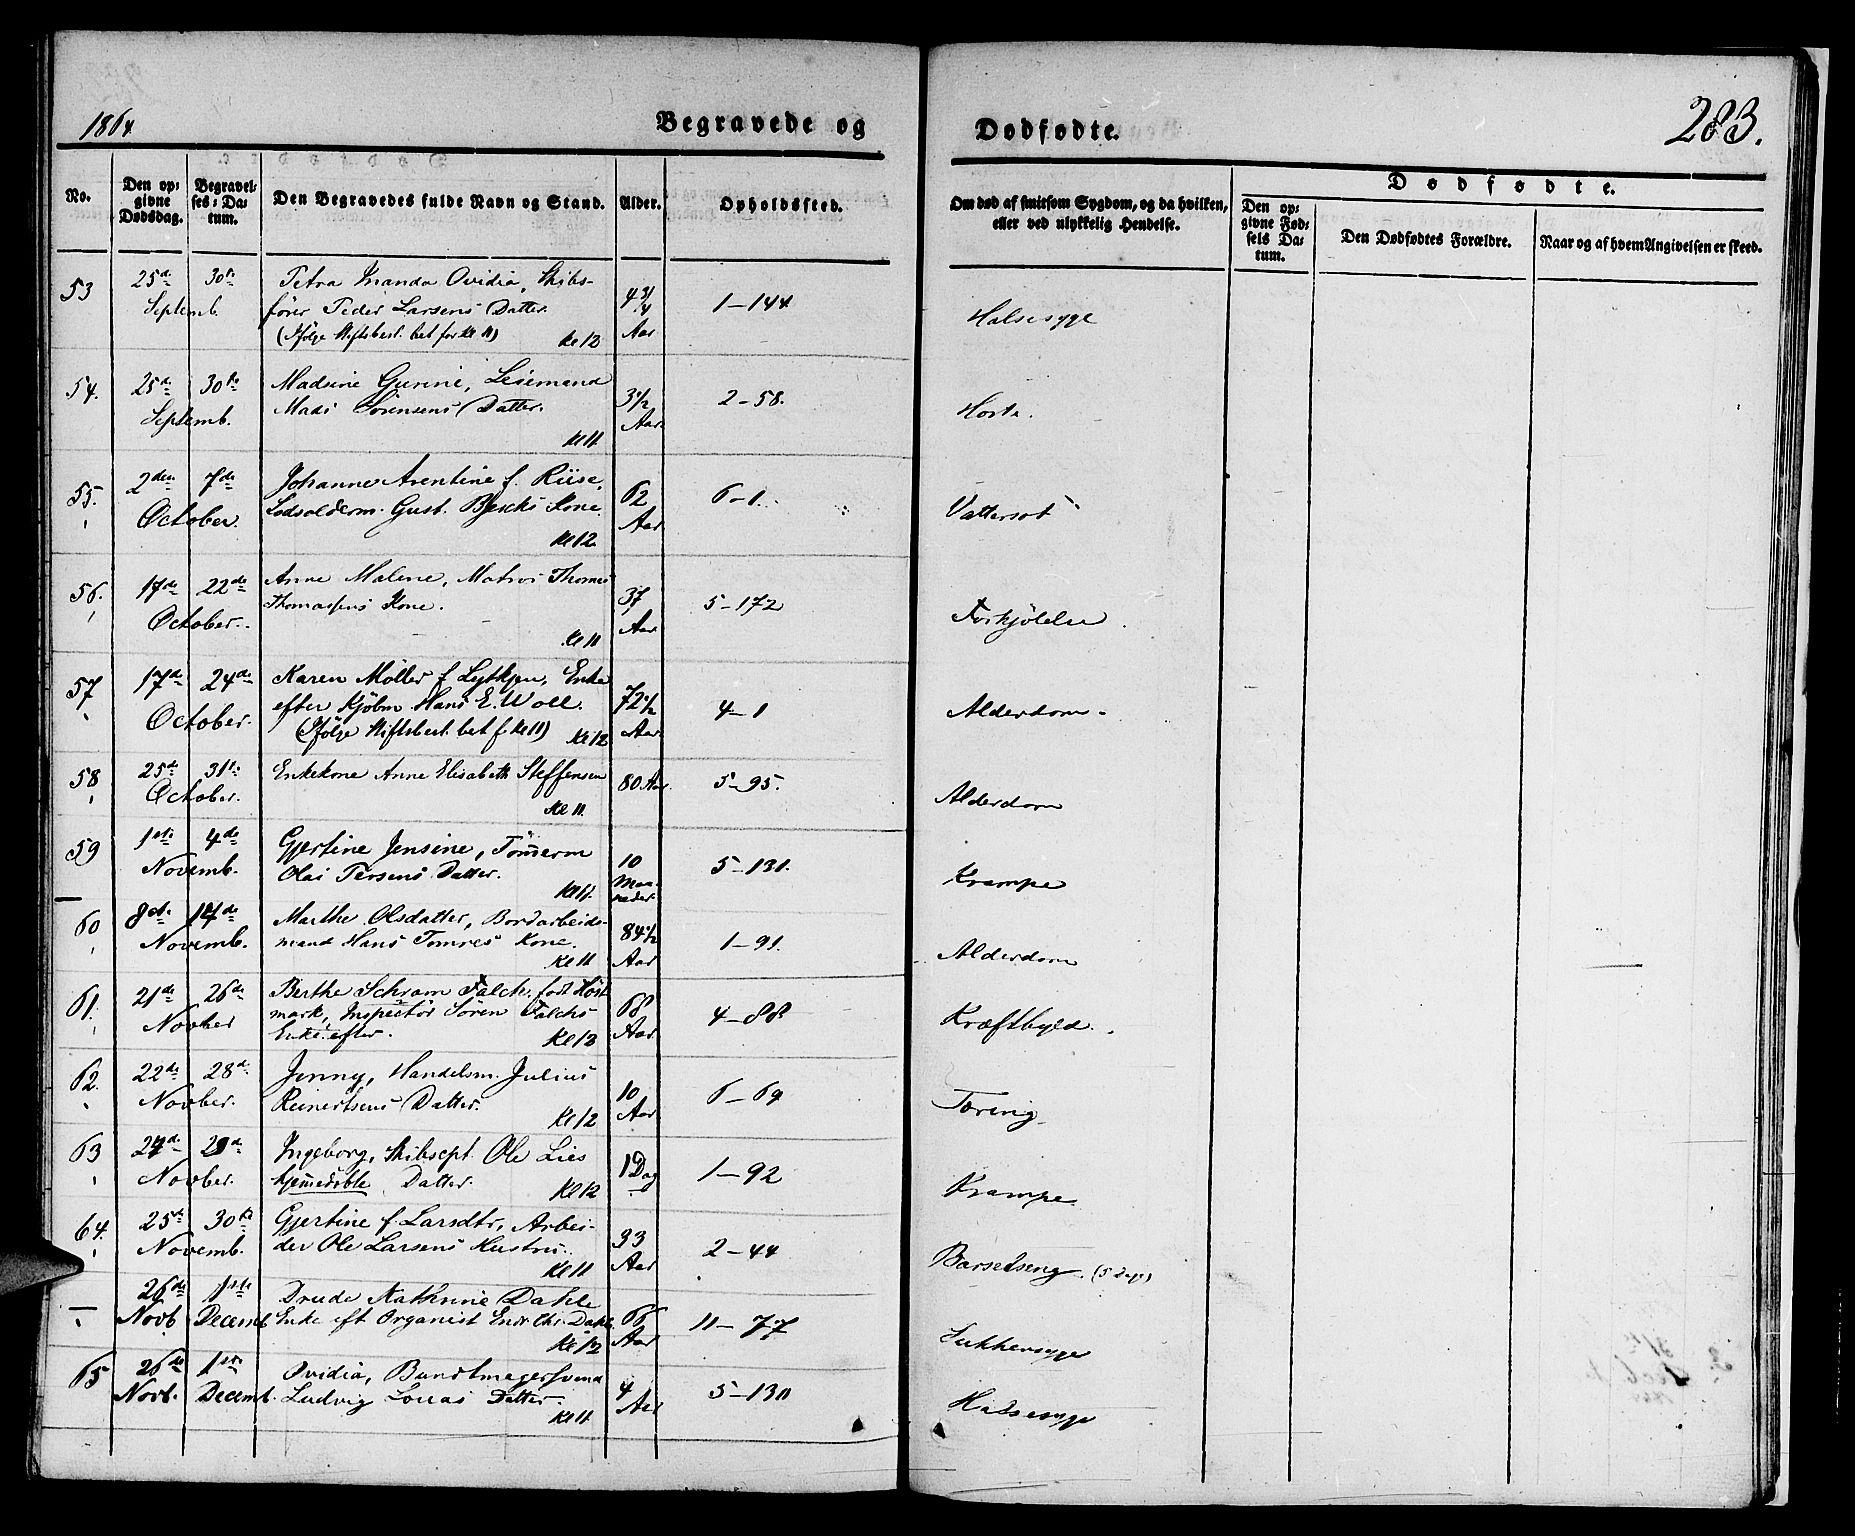 1864
Begravede og
Dødfødte.
283.
No.
Den op-
givne
Dødsdag.
Begravel-
ses-Da-
tum.
Den Begravedes fulde Navn og Stand.
Alder.
Opholdssted.
Om død af smitsom Sygdom, og da hvilken,
eller ved ulykkelig Hendelse.
Dødfødte.
Den op-
givne Fød-
sels Da-
tum.
Den Dødfødtes Forældre.
Naar og af hvem Angivelsen er skeed.
53 25de 30te Petra Amanda Ovidia, Skibs- 4 3/4 1-144 Halsesyge
Septemb. fører Peder Larsens Datter. Aar
(Ifølge Stiftsbest. bet for Kl 11) Kl 12
54. 25de 30te Madsine Gurine, Leiemand 3 1/2 2-58. Hoste.
Septemb. Mads Sørensens Datter. Aar
Kl 11
55. 2den 7de Johanne Arentine f. Riise, 62 6-1. Vattersot
October. Lodsolderm. Gust. Kone. Aar
Kl 12
56. 17de 22de Anne Malene, Matros Thomes 37 5-172 Forkjølelse.
October. Thomassens Kone. Aar
Kl 11
57 17de 24de Karen Møller f. Enke 72 1/2 4-1 Alderdom
October. efter Kjøbm. Hans E. Woll. Aar
(Ifølge Stiftsbest. bet f. Kl 11) Kl 12
58 25de 31te Enkekone Anne Elisabeth Steffensen 80 Aar 5-95. Alderdom
October. Kl 11.
59 1ste 4de Gjertine Jensine, Tømmerm 10 5-131. Krampe
Novemb. Olai Tersens Datter. Maa-
Kl 11. neder.
60 8de 14de Marthe Olsdatter, Bordarbeids- 84 1/2 1-91. Alderdom
Novemb. mand Hans Tomres Kone. Aar
Kl 11
61. 21de 26de Berthe Schram Falch, født Høst 68 4-88 Kræftbyld.
Novber mark, Inspectør Søren Falchs Aar
Enke efter. Kl 12
62. 22de 28de Jenny, Handelsm. Julius 10 6-69 Tæring
Novber. Reinertsens Datter. Aar
Kl 12
63 24de 29de Ingeborg, Skibscpt. Ole Lies 1 Dag 1-92 Krampe
Novber. hjemedøbte Datter. Kl 12
64. 25de 30te Gjertine f. Larsdtr, Arbei- 33 2-44 Barselseng. (5 Dage)
Novemb. der Ole Larsens Hustru. Aar
Kl 11
26de 1ste Drude Kathrine Dahle 66 11-77 Sukkersyge
Novb Decemb. Enke eft Organist Endr. Chr. Dahl. Aar
Kl 12
65 26de 1ste Ovidia, Bundtmagersvend 4 5-130 Halsesyge
Novb. Decemb. Ludvig Louas Datter. Aar
Kl 11